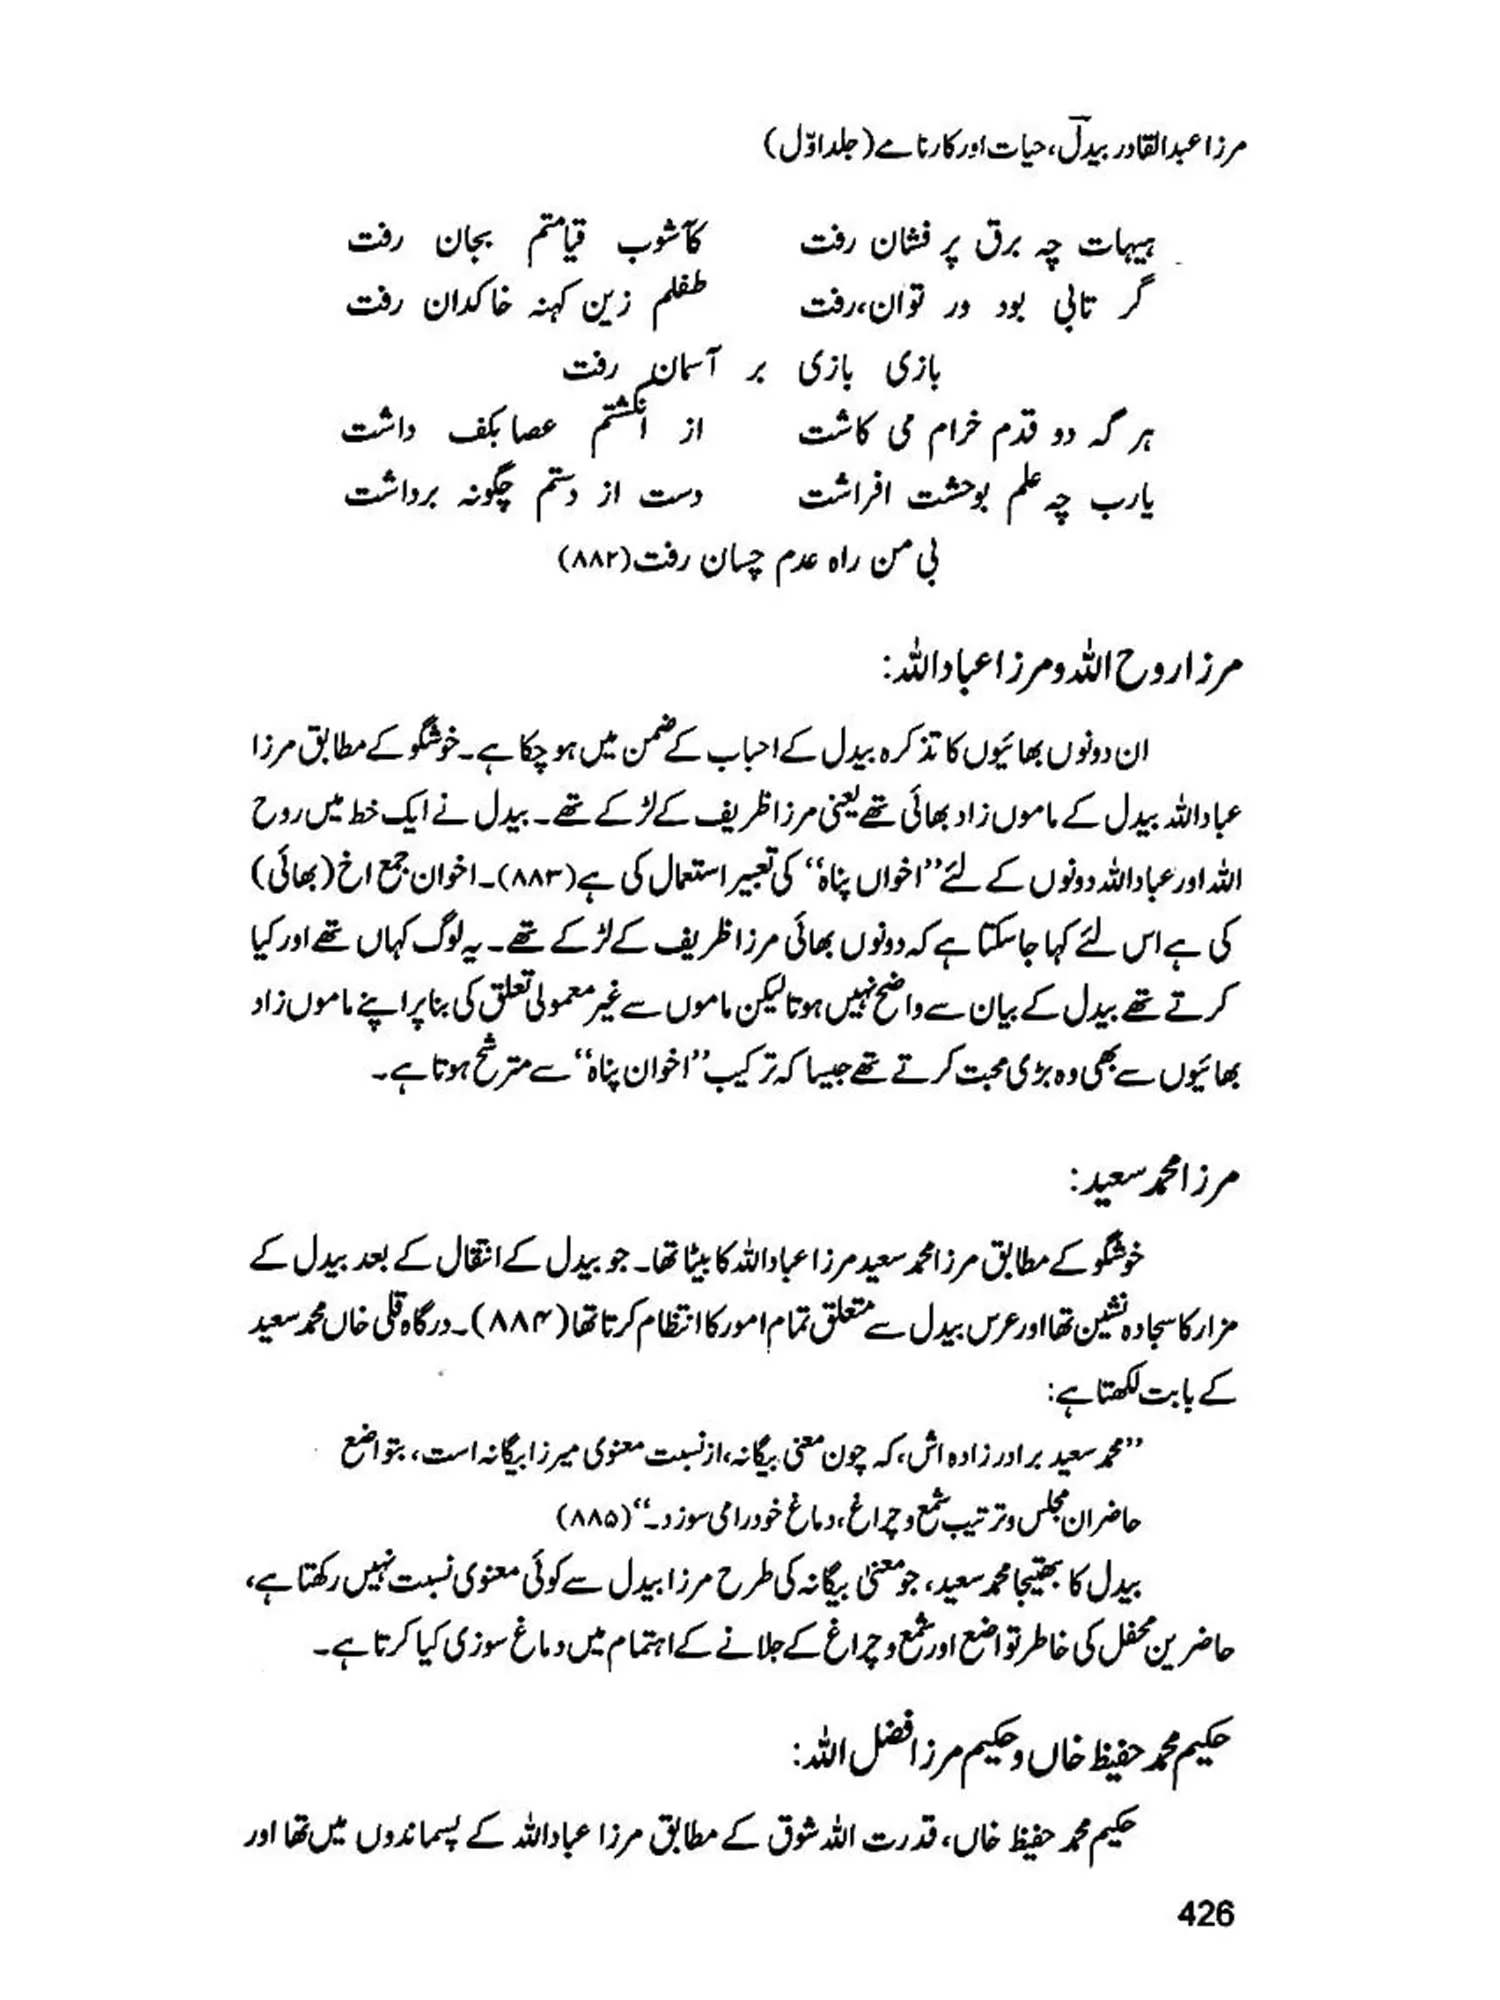 مرزا عبدالقادر بیدلؔ، حیات اور کارنامے (جلد اوّل)
ہیہات چہ برق پر فشان رفت کآشوب قیامتم بجان رفت
گر تابی بود ور توان، رفت طفلم زین کہنہ خاکدان رفت
بازی بازی بر آسمان رفت
ہر گہ دو قدم خرام می کاشت از انگشتم عصا بکف داشت
یارب چہ علم بوحشت افراشت دست از دستم چگونہ برداشت
بی من راہ عدم چسان رفت (۸۸۲)
مرزا روح اللہ و مرزا عباداللہ:
ان دونوں بھائیوں کا تذکرہ بیدل کے احباب کے ضمن میں ہو چکا ہے۔ خوشگو کے مطابق مرزا
عباداللہ بیدل کے ماموں زاد بھائی تھے یعنی مرزا ظریف کے لڑکے تھے۔ بیدل نے ایک خط میں روح
اللہ اور عباداللہ دونوں کے لئے ”اخواں پناہ“ کی تعبیر استعمال کی ہے (۸۸۳)۔ اخوان جمع اخ (بھائی)
کی ہے اس لئے کہا جا سکتا ہے کہ دونوں بھائی مرزا ظریف کے لڑکے تھے۔ یہ لوگ کہاں تھے اور کیا
کرتے تھے بیدل کے بیان سے واضح نہیں ہوتا لیکن ماموں سے غیر معمولی تعلق کی بنا پر اپنے ماموں زاد
بھائیوں سے بھی وہ بڑی محبت کرتے تھے جیسا کہ ترکیب ”اخوان پناہ“ سے مترشح ہوتا ہے۔
مرزا محمد سعید:
خوشگو کے مطابق مرزا محمد سعید مرزا عباداللہ کا بیٹا تھا۔ جو بیدل کے انتقال کے بعد بیدل کے
مزار کا سجادہ نشین تھا اور عرس بیدل سے متعلق تمام امور کا انتظام کرتا تھا (۸۸۴)۔ درگاہ قلی خاں محمد سعید
کے بابت لکھتا ہے:
”محمد سعید برادر زادہ اش، کہ چون معنی بیگانہ، از نسبت معنوی میرزا بیگانہ است، بتواضع
حاضران مجلس و ترتیب شمع و چراغ، دماغ خود را می سوزد۔“ (۸۸۵)
بیدل کا بھتیجا محمد سعید، جو معنیٰ بیگانہ کی طرح مرزا بیدل سے کوئی معنوی نسبت نہیں رکھتا ہے،
حاضرین محفل کی خاطر تواضع اور شمع و چراغ کے جلانے کے اہتمام میں دماغ سوزی کیا کرتا ہے۔
حکیم محمد حفیظ خاں و حکیم مرزا فضل اللہ:
حکیم محمد حفیظ خاں، قدرت اللہ شوق کے مطابق مرزا عباداللہ کے پسماندوں میں تھا اور
426